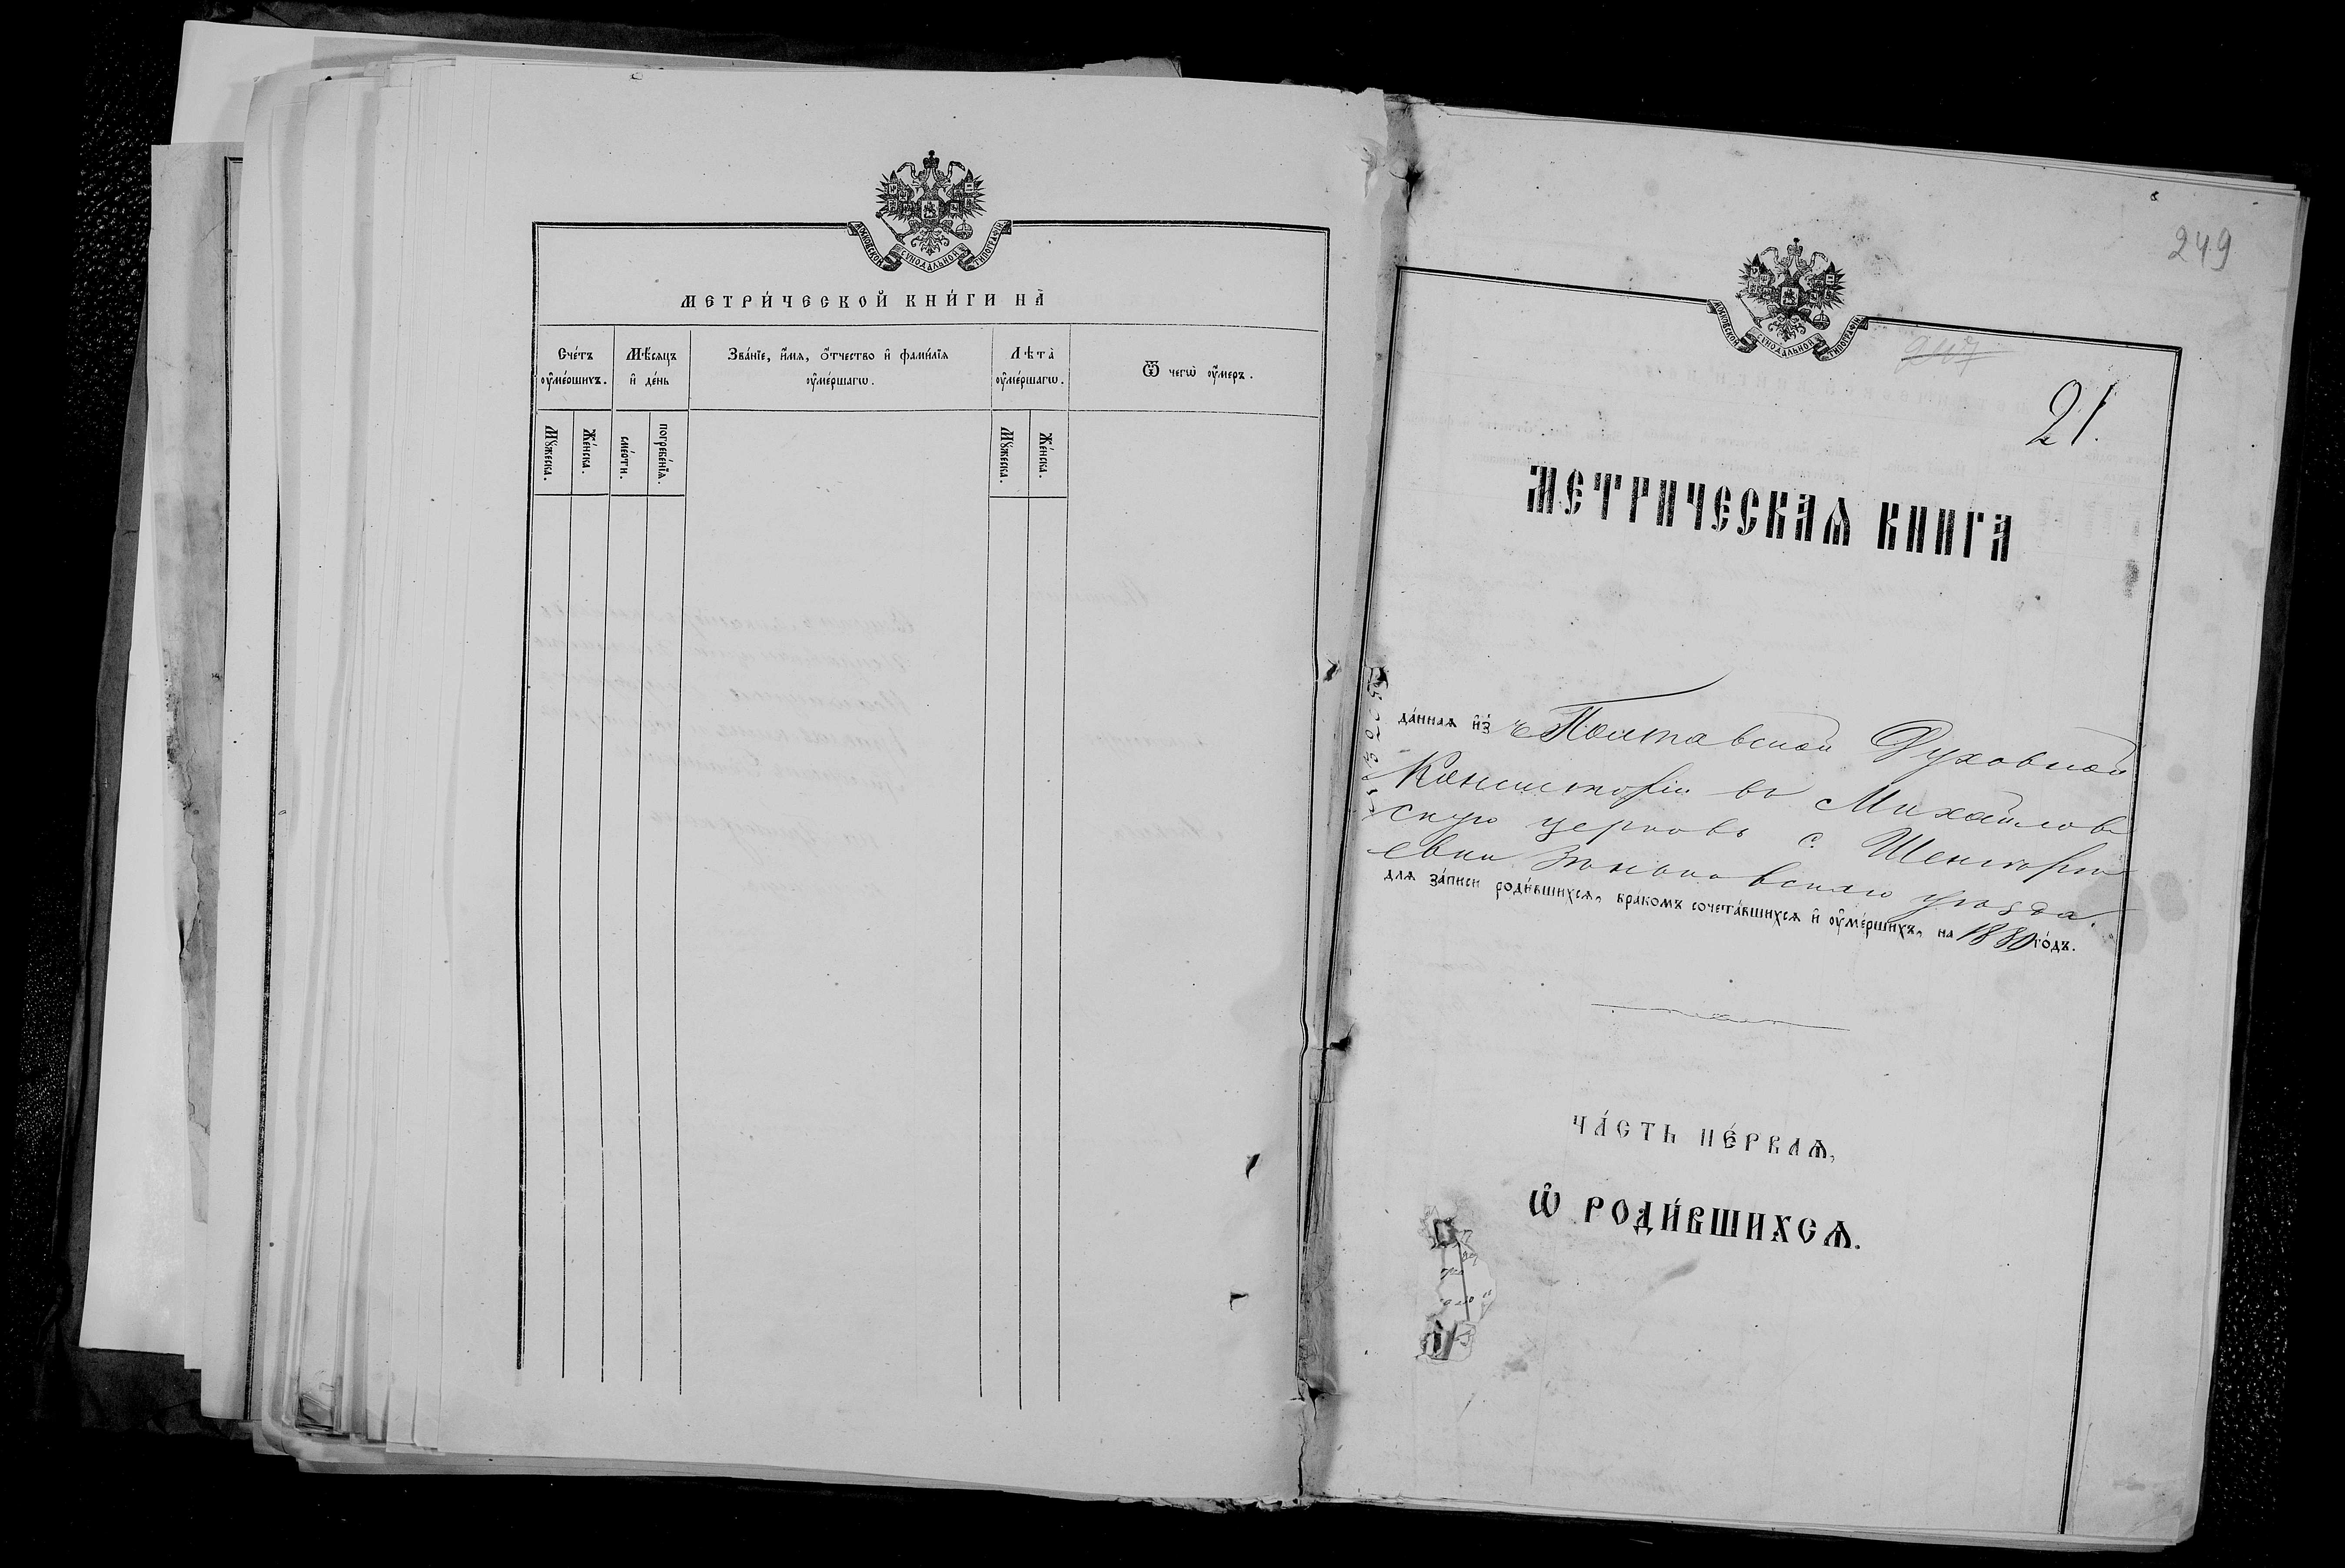 МОСКОВСКОЙ СѴНОДАЛЬНОЙ ТИПОГРАФІИ
МЕТРИ́ЧЕСКОЙ КНИ́ГИ НА̀
Сче́тъ ᲂу҆ме́ршихъ.
Мѣ́сяцъ и҆ де́нь
Зва́нїе, и҆́мѧ, ѻ҆́тчество и҆ фами́лїѧ ᲂу҆ме́ршагѡ.
Лѣ́та̀ ᲂу҆ме́ршагѡ.
Ѿ чегѡ̀ ᲂу҆́меръ.
Мꙋ́жеска.
Же́нска.
сме́рти.
погребе́нїѧ.
Мꙋ́жеска.
Же́нска.
249
МОСКОВСКОЙ СѴНОДАЛЬНОЙ ТИПОГРАФІИ
247
21.
МЕТРИЧЕСКАѦ КНИГА
да́ннаѧ и҆з̾ Полтавской Духовной
Консисторіи въ Михайлов
скую церковь с.
уѣзда
длѧ за́писи роди́вшихсѧ, бра́комъ сочета́вшихсѧ и҆ ᲂу҆ме́ршихъ, на 1880 го́дъ.
ЧА́СТЬ ПЕ́РВАѦ,
Ѡ҆ РОДИ́ВШИХСѦ.